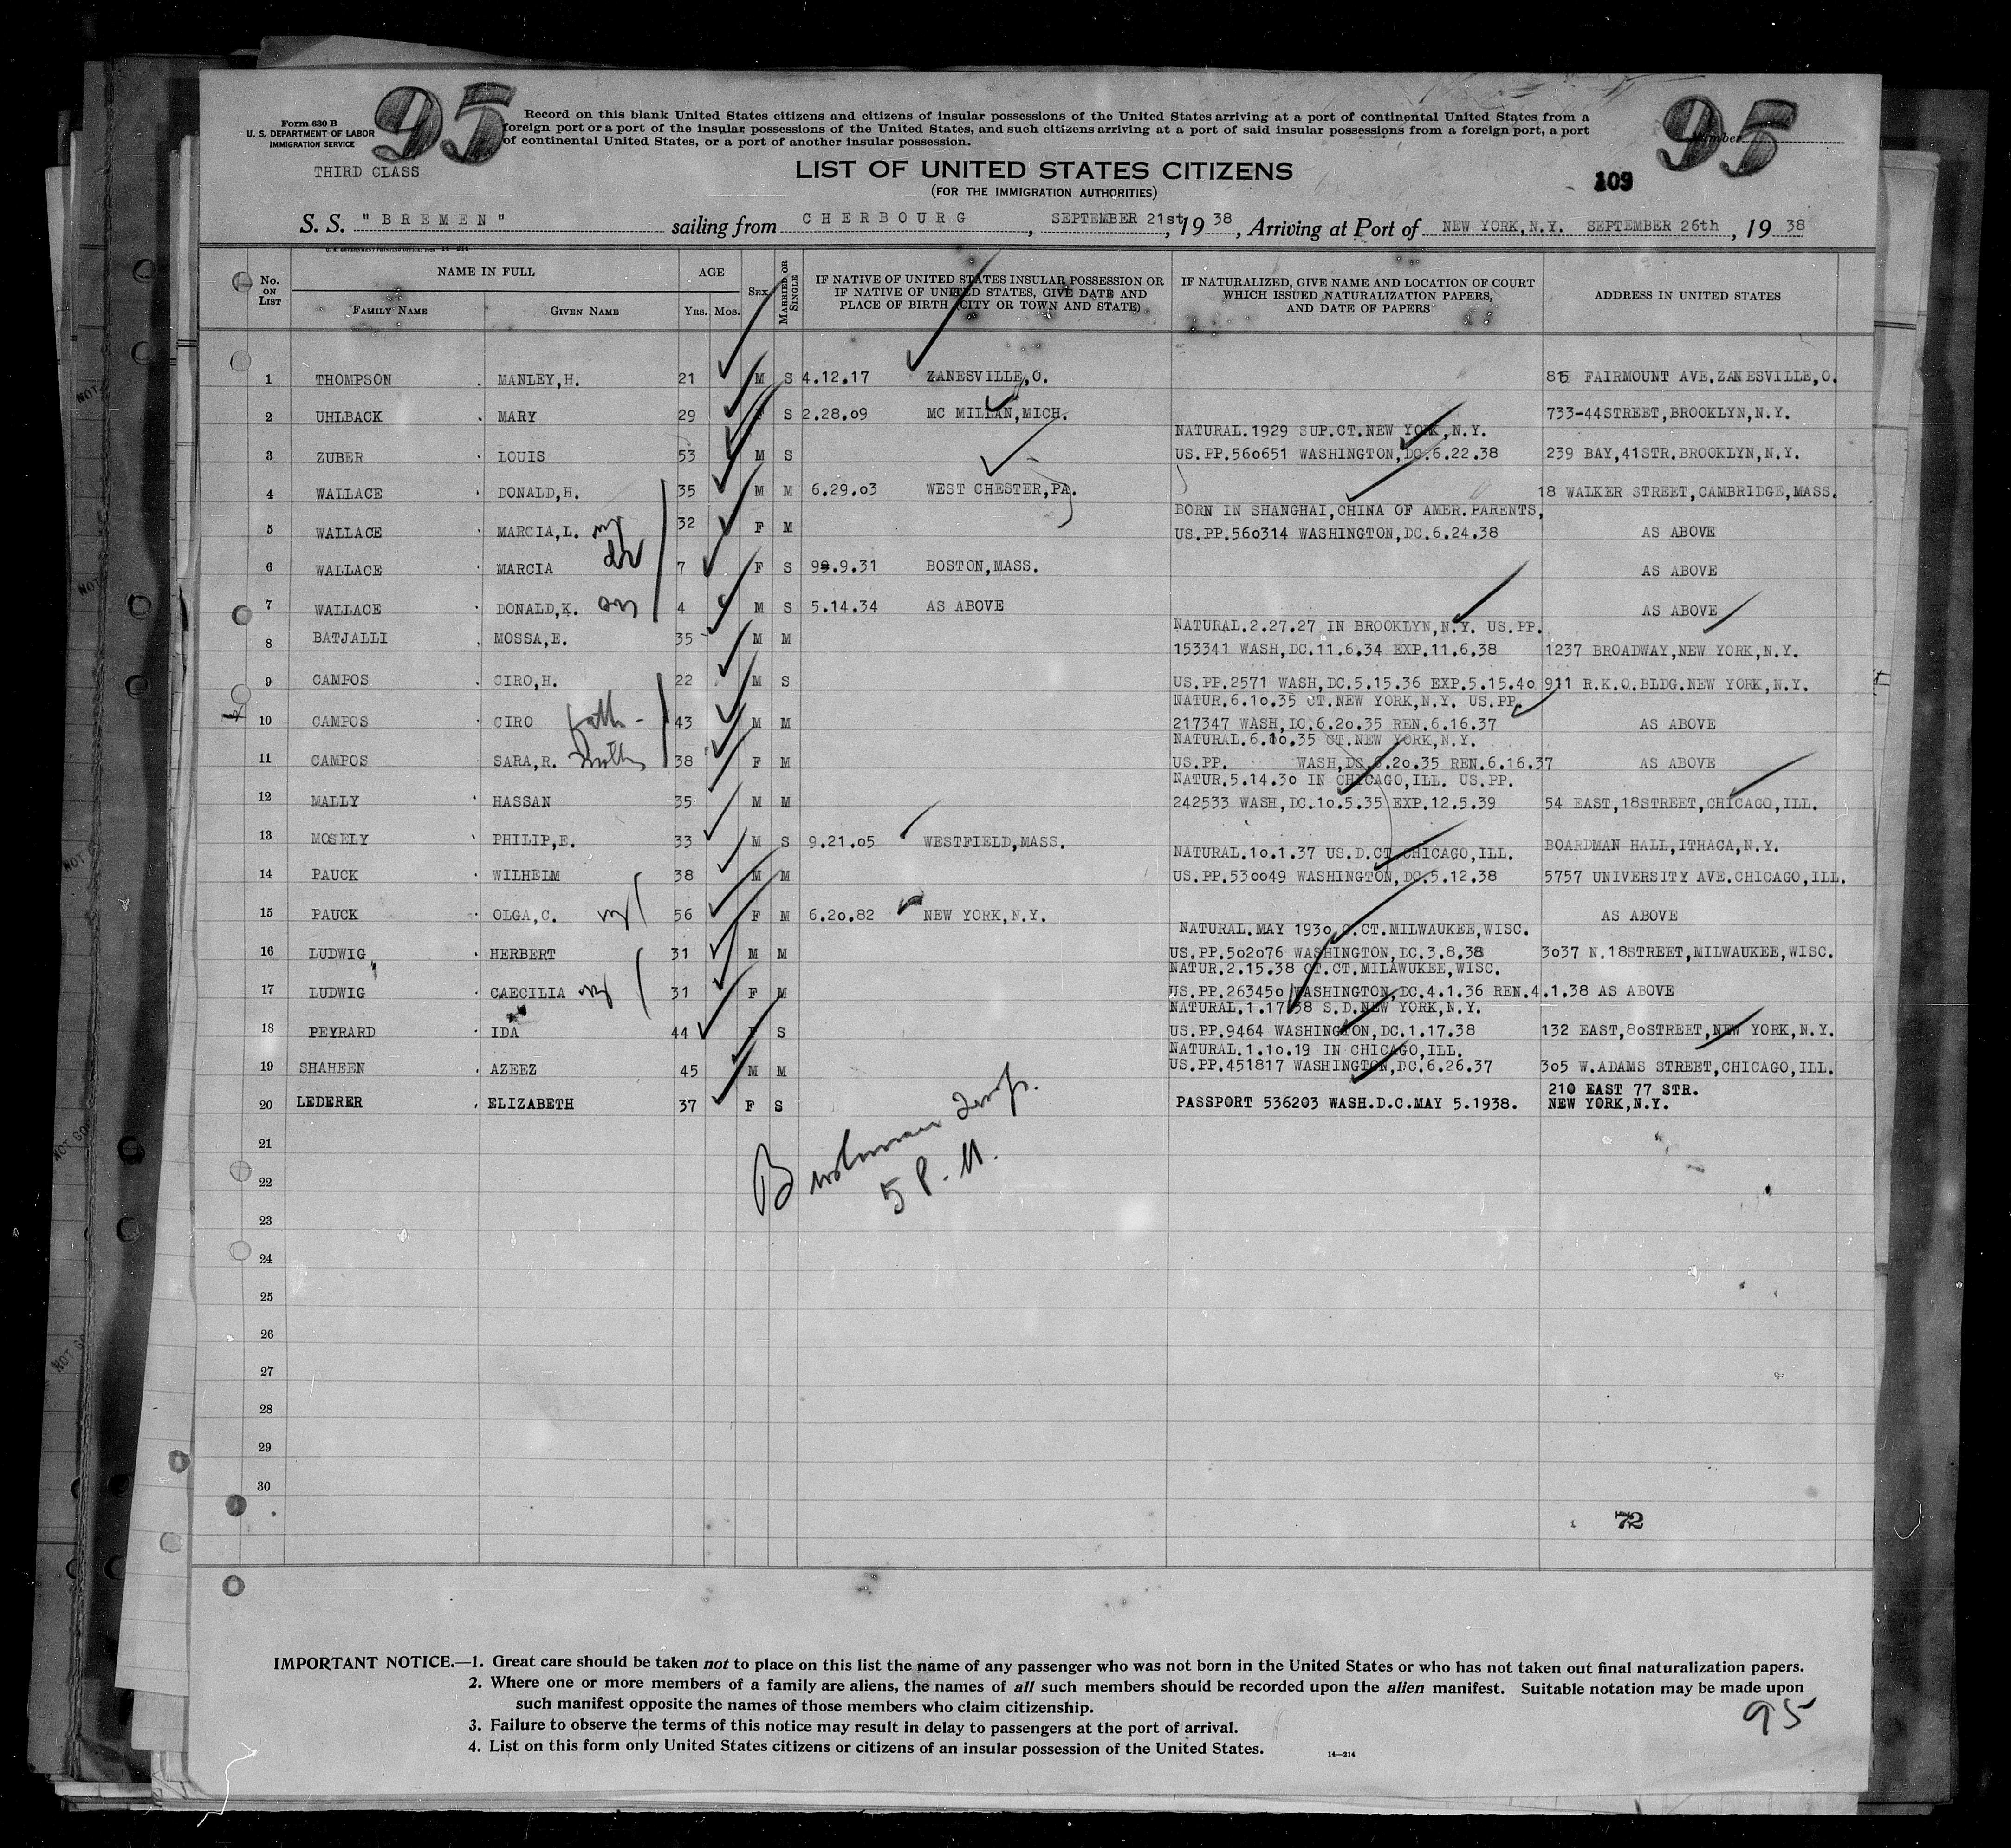 95
95
Form 630 B
U. S. DEPARTMENT OF LABOR
IMMIGRATION SERVICE
Record on this blank United States citizens and citizens of insular possessions of the United States arriving at a port of continental United States from a
foreign port or a port of the insular possessions of the United States, and such citizens arriving at a port of said insular possessions from a foreign port, a port
of continental United States, or a port of another insular possession.
Number
THIRD CLASS
LIST OF UNITED STATES CITIZENS
(FOR THE IMMIGRATION AUTHORITIES)
109
S. S. "BREMEN" sailing from CHERBOURG, SEPTEMBER 21st, 19 38, Arriving at Port of NEW YORK,N.Y. SEPTEMBER 26th, 19 38
No. ON LIST
NAME IN FULL
FAMILY NAME
GIVEN NAME
AGE
YRS. MOS.
SEX
MARRIED OR SINGLE
IF NATIVE OF UNITED STATES INSULAR POSSESSION OR
IF NATIVE OF UNITED STATES, GIVE DATE AND
PLACE OF BIRTH (CITY OR TOWN AND STATE)
IF NATURALIZED, GIVE NAME AND LOCATION OF COURT
WHICH ISSUED NATURALIZATION PAPERS,
AND DATE OF PAPERS
ADDRESS IN UNITED STATES
1 THOMPSON MANLEY,H. 21 M S 4.12.17 ZANESVILLE,O. 85 FAIRMOUNT AVE.ZANESVILLE,O.
2 UHLBACK MARY 29 F S 2.28.09 MC MILLAN,MICH. 733-44STREET,BROOKLYN,N.Y.
NATURAL.1929 SUP.CT.NEW YORK,N.Y.
3 ZUBER LOUIS 53 M S US.PP.560651 WASHINGTON,DC.6.22.38 239 BAY,41STR.BROOKLYN,N.Y.
4 WALLACE DONALD,H. 35 M M 6.29.03 WEST CHESTER,PA. 18 WALKER STREET,CAMBRIDGE,MASS.
BORN IN SHANGHAI,CHINA OF AMER.PARENTS,
5 WALLACE MARCIA,L. 32 F M US.PP.560314 WASHINGTON,DC.6.24.38 AS ABOVE
6 WALLACE MARCIA 7 F S 99.9.31 BOSTON,MASS. AS ABOVE
7 WALLACE DONALD,K. 4 M S 5.14.34 AS ABOVE AS ABOVE
NATURAL.2.27.27 IN BROOKLYN,N.Y. US.PP.
8 BATJALLI MOSSA,E. 35 M M 153341 WASH,DC.11.6.34 EXP.11.6.38 1237 BROADWAY,NEW YORK,N.Y.
9 CAMPOS CIRO,H. 22 M S US.PP.2571 WASH,DC.5.15.36 EXP.5.15.40 911 R.K.O.BLDG.NEW YORK,N.Y.
NATUR.6.10.35 CT.NEW YORK,N.Y. US.PP.
10 CAMPOS CIRO fath- 43 M M 217347 WASH,DC.6.20.35 REN.6.16.37 AS ABOVE
NATURAL.6.10.35 CT.NEW YORK,N.Y.
11 CAMPOS SARA,R. 38 F M US.PP. WASH,DC.6.20.35 REN.6.16.37 AS ABOVE
NATUR.5.14.30 IN CHICAGO,ILL. US.PP.
12 MALLY HASSAN 35 M M 242533 WASH,DC.10.5.35 EXP.12.5.39 54 EAST,18STREET,CHICAGO,ILL.
13 MOSELY PHILIP,E. 33 M S 9.21.05 WESTFIELD,MASS. BOARDMAN HALL,ITHACA,N.Y.
NATURAL.10.1.37 US.D.CT.CHICAGO,ILL.
14 PAUCK WILHELM 38 M M US.PP.530049 WASHINGTON,DC.5.12.38 5757 UNIVERSITY AVE.CHICAGO,ILL.
15 PAUCK OLGA,C. 56 F M 6.20.82 NEW YORK,N.Y. AS ABOVE
NATURAL.MAY 1930 C.CT.MILWAUKEE,WISC.
16 LUDWIG HERBERT 31 M M US.PP.502076 WASHINGTON,DC.3.8.38 3037 N.18STREET,MILWAUKEE,WISC.
NATUR.2.15.38 CT.CT.MILAWUKEE,WISC.
17 LUDWIG CAECILIA 31 F M US.PP.263450 WASHINGTON,DC.4.1.36 REN.4.1.38 AS ABOVE
NATURAL.1.17.38 S.D.NEW YORK,N.Y.
18 PEYRARD IDA 44 F S US.PP.9464 WASHINGTON,DC.1.17.38 132 EAST,80STREET,NEW YORK,N.Y.
NATURAL.1.10.19 IN CHICAGO,ILL.
19 SHAHEEN AZEEZ 45 M M US.PP.451817 WASHINGTON,DC.6.26.37 305 W.ADAMS STREET,CHICAGO,ILL.
210 EAST 77 STR.
20 LEDERER ELIZABETH 37 F S PASSPORT 536203 WASH.D.C.MAY 5.1938. NEW YORK,N.Y.
21
22
5 P. M.
23
24
25
26
27
28
29
30
72
IMPORTANT NOTICE.—1. Great care should be taken not to place on this list the name of any passenger who was not born in the United States or who has not taken out final naturalization papers.
2. Where one or more members of a family are aliens, the names of all such members should be recorded upon the alien manifest. Suitable notation may be made upon
such manifest opposite the names of those members who claim citizenship.
3. Failure to observe the terms of this notice may result in delay to passengers at the port of arrival.
4. List on this form only United States citizens or citizens of an insular possession of the United States.
14—214
95